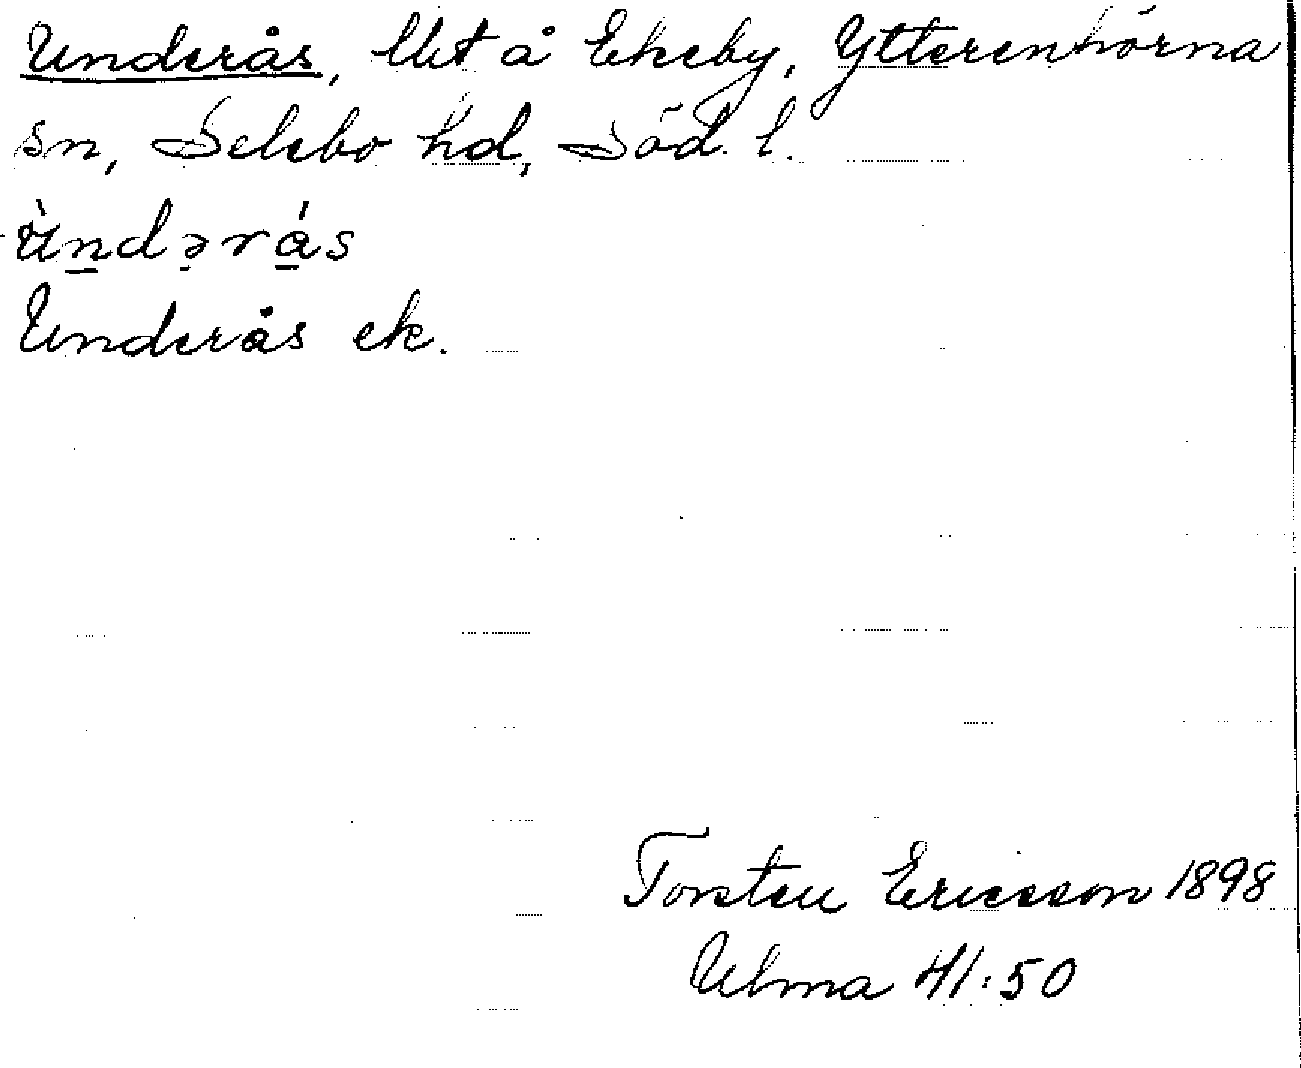 Underås, Utt å Ekeby, Ytterenhörna
sn, Selebo hd, Söd. l.
ùndərás
Underås ek.
Torsten Ericsson 1898
Ulma 41:50